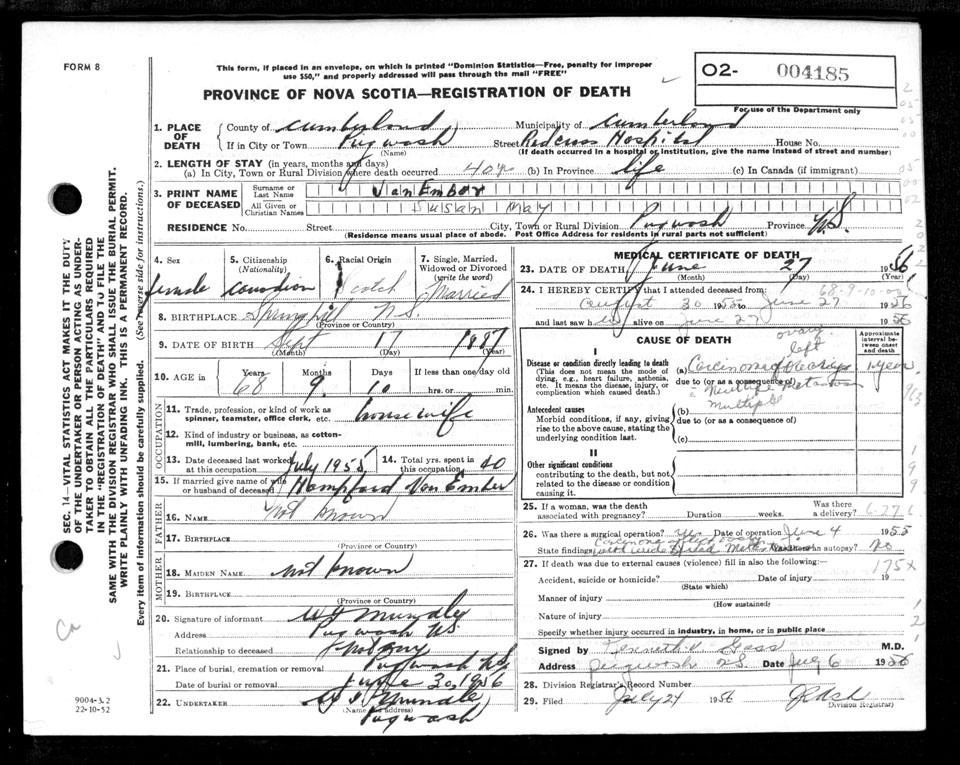 FORM 8
This form, if placed in an envelope, on which is printed "Dominion Statistics—Free, penalty for improper
use $50," and properly addressed will pass through the mail "FREE"
PROVINCE OF NOVA SCOTIA—REGISTRATION OF DEATH
O2- 004185
For use of the Department only
1. PLACE OF DEATH
County of Cumberland Municipality of Cumberland
If in City or Town Pugwash Street Red Cross Hospital House No.
(Name) (If death occurred in a hospital or institution, give the name instead of street and number)
2. LENGTH OF STAY (in years, months and days)
(a) In City, Town or Rural Division where death occurred 40 yrs (b) In Province life (c) In Canada (if immigrant)
3. PRINT NAME OF DECEASED
Surname or Last Name Van Ember
All Given or Christian Names Susan May
RESIDENCE No. Street City, Town or Rural Division Pugwash Province N.S.
(Residence means usual place of abode. Post Office Address for residents in rural parts not sufficient)
4. Sex female
5. Citizenship (Nationality) Canadian
6. Racial Origin Scotch
7. Single, Married, Widowed or Divorced (write the word) Married
8. BIRTHPLACE Springhill N.S.
(Province or Country)
9. DATE OF BIRTH Sept 17 1887
(Month) (Day) (Year)
10. AGE in Years 68 Months 9 Days 10 If less than one/day old hrs. or min.
OCCUPATION
11. Trade, profession, or kind of work as spinner, teamster, office clerk, etc. housewife
12. Kind of industry or business, as cotton-mill, lumbering, bank, etc.
13. Date deceased last worked at this occupation July 1955
14. Total yrs. spent in this occupation 40
15. If married give name of wife or husband of deceased Hampford Van Ember
FATHER
16. NAME Not known
17. BIRTHPLACE
(Province or Country)
MOTHER
18. MAIDEN NAME Not known
19. BIRTHPLACE
(Province or Country)
20. Signature of informant
Address Pugwash NS.
Relationship to deceased
21. Place of burial, cremation or removal Pugwash NS
Date of burial or removal June 30, 1956
22. UNDERTAKER
(Name and address)
Pugwash
MEDICAL CERTIFICATE OF DEATH
23. DATE OF DEATH June 27 1956
(Month) (Day) (Year)
68-9-10
24. I HEREBY CERTIFY that I attended deceased from:
August 30 1955 to June 27 1956
and last saw her alive on June 27 1956
CAUSE OF DEATH
Approximate interval between onset and death
I
Disease or condition directly leading to death
(This does not mean the mode of dying, e.g., heart failure, asthenia, etc. It means the disease, injury, or complication which caused death.)
ovary
left
(a) Carcinoma of ovary 1 year
due to (or as a consequence of)
Multiple
Antecedent causes
Morbid conditions, if any, giving rise to the above cause, stating the underlying condition last.
(b)
due to (or as a consequence of)
(c)
II
Other significant conditions
contributing to the death, but not related to the disease or condition causing it.
25. If a woman, was the death associated with pregnancy? Duration weeks. Was there a delivery? 6-27-6
26. Was there a surgical operation? Yes Date of operation June 4 1955
State findings Carcinoma of left ovary with wide spread Was there an autopsy? No
27. If death was due to external causes (violence) fill in also the following: 175x
Accident, suicide or homicide? Date of injury 19
(State which)
Manner of injury
(How sustained)
Nature of injury
Specify whether injury occurred in industry, in home, or in public place
Signed by Kenneth Gass M.D.
Address Pugwash N.S. Date 6 1956
28. Division Registrar's Record Number
29. Filed July 24 1956
(Division Registrar)
SEC. 14—VITAL STATISTICS ACT MAKES IT THE DUTY
OF THE UNDERTAKER OR PERSON ACTING AS UNDER-
TAKER TO OBTAIN ALL THE PARTICULARS REQUIRED
IN THE "REGISTRATION OF DEATH" AND TO FILE THE
SAME WITH THE DIVISION REGISTRAR WHO SHALL ISSUE THE BURIAL PERMIT.
WRITE PLAINLY WITH UNFADING INK. THIS IS A PERMANENT RECORD.
Every item of information should be carefully supplied. (See reverse side for instructions.)
Ca
9004-3.2
22-10-52